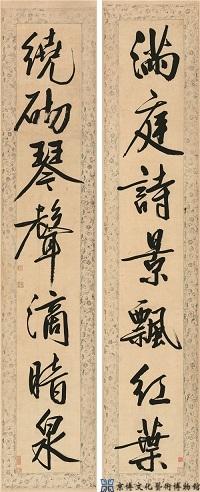 滿庭詩景飄紅葉
繞砌琴聲滴暗泉
京博文化藝術博物館